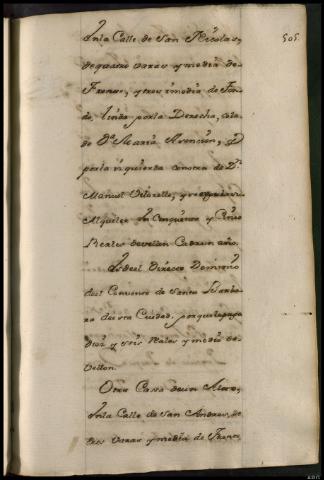 505
En la Calle de San Nicolas,
de quatro varas y media de
Frente, y tres y media de Fon-
do, linda por la Derecha, casa
de Dª Maria Asencion, y
por la izquierda con otra de Dn
Manuel
Alquiler en Cinquenta y Cinco
Reales de vellon Cada un año.
Es del Directo Dominio
del Convento de Santa Barba-
ra de esta Ciudad, por que le paga
diez y seis Reales y medio de
Vellon.
Otra Casa de un Alto,
En la Calle de San Andres, de
tres varas y media de Frente,